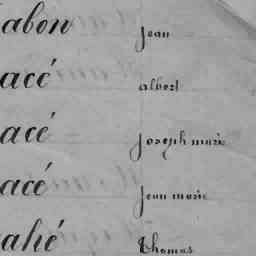 abon Jean
acé albert
acé Joseph marie
acé Jean marie
ahé Thomas